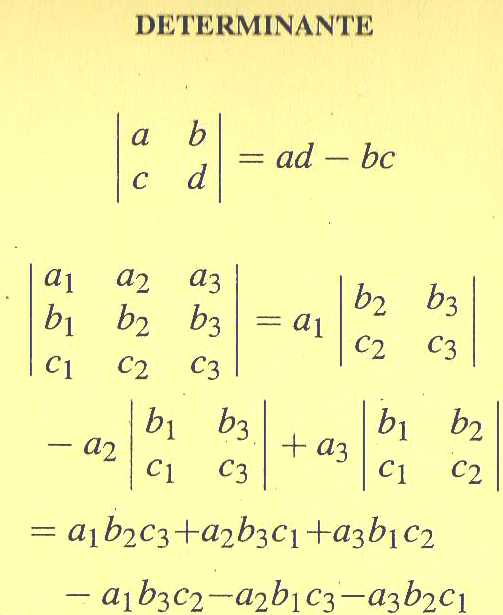 DETERMINANTE
| a b |
| c d | = ad − bc
| a1 a2 a3 |
| b1 b2 b3 | = a1 | b2 b3 |
| c1 c2 c3 | | c2 c3 |
− a2 | b1 b3 | + a3 | b1 b2 |
| c1 c3 | | c1 c2 |
= a1b2c3+a2b3c1+a3b1c2
− a1b3c2−a2b1c3−a3b2c1